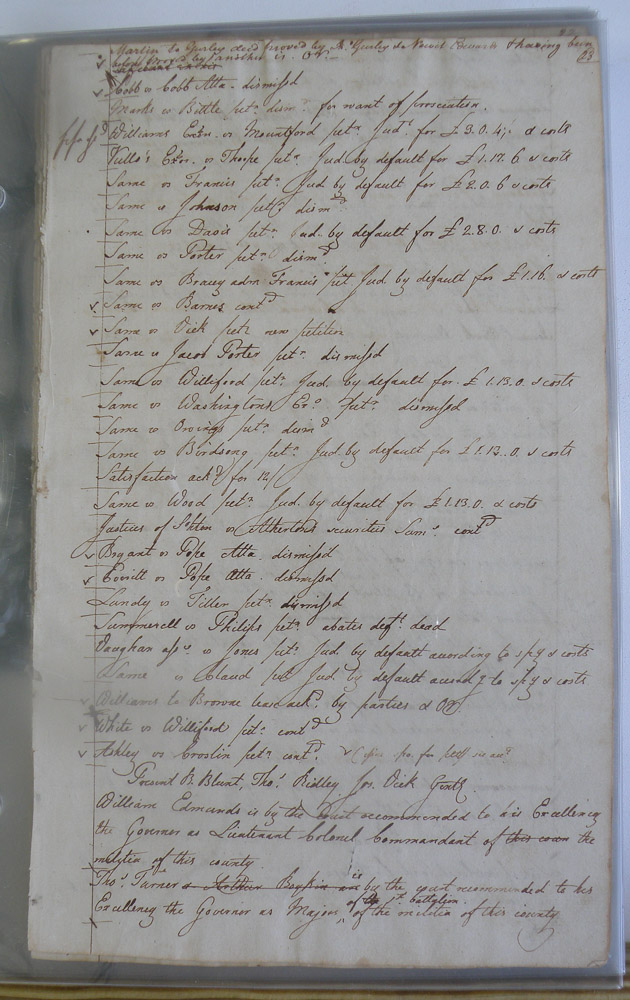 Martin to Gurley deed proved by N. Gurley de Newit Edwards & having been
before proved by another is O.R.
Cobb vs Cobb Atta. dismissd
Marks vs Bittle petn. dismd. for want of prosecution.
Williams Exor. vs Mountford petn. Judt. for £3.0.4½ & costs
Exor. vs Thorpe petn. Jud. by default for £1.17.6 & costs
Same vs Francis petn. Jud by default for £2.0.6 & costs
Same vs Johnson petn. dismd.
Same vs Davis petn. Jud. by default for £2.8.0. & costs
Same vs Porter petn. dismd.
Same vs Bracey adm Francis pet. Jud by default for £1.16. & costs
Same vs Barnes contd
Same vs Vick petn. new petition
Same vs Jacob Porter petn. dismissd
Same vs Williford petn. Jud. by default for £1.13.0. & costs
Same vs Washingtons Exo. petn. dismissd
Same vs petn. dismd
Same vs Birdsong petn. Jud by default for £1.13..0. & costs
Satisfaction ackd. for 12/
Same vs Wood petn. Jud. by default for £1.13.0. & costs
Justices of Shton vs Athertons securities Sums. contd
Bryant vs Pope Atta dismissd
Everitt vs Pope Atta. dismissd
Lundy vs Tiller petn. dismissd
Summerell vs Philips petn. abates deft. dead
Vaughan asse. vs Jones petn. Jud by default according to spy & costs
Same vs Claud pet Jud. by default accordg to spy & costs
Williams to Browne lease ackd. by parties & OR
White vs Williford petn. contd
Ashley vs Croslin petn. contd.
Present B. Blunt, Thos. Ridley Jos. Vick Gentl.
William Edmunds is by the Court recommended to his Excellency
the Governor as Lieutenant Colonel Commandant of this coun the
militia of this county
Thos. Turner & Arthur Boykin are is by the court recommended to his
Excellency the Governor as Major, of the 1st battalion. of the militia of this county